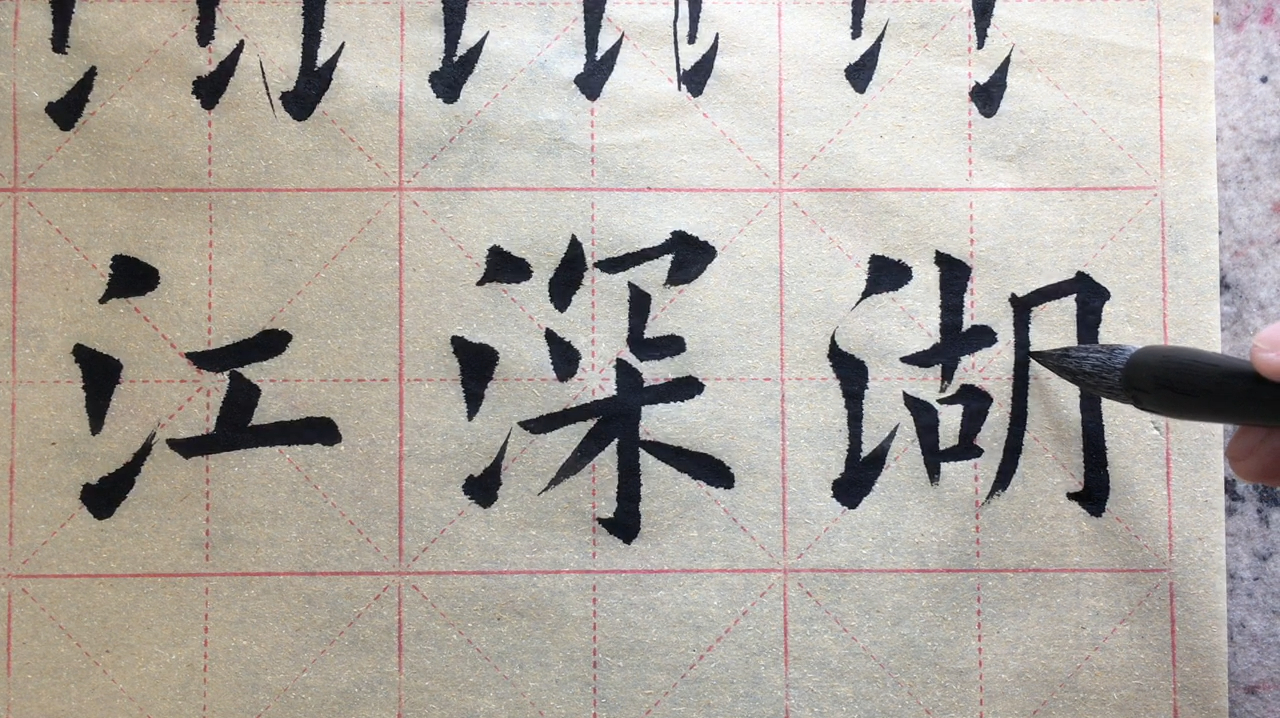 江深湖